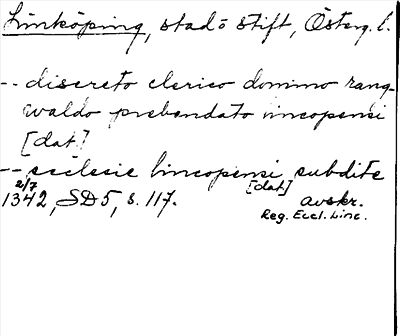 Linköping, stad o stift, Österg. l.
-- discreto clerico domino rang-
waldo prebendato lincopensi
[dat]
-- ecclesie lincopensi subdite
[dat]
2/7
1342, SD 5, s. 117. avskr.
Reg. Eccl. Linc.